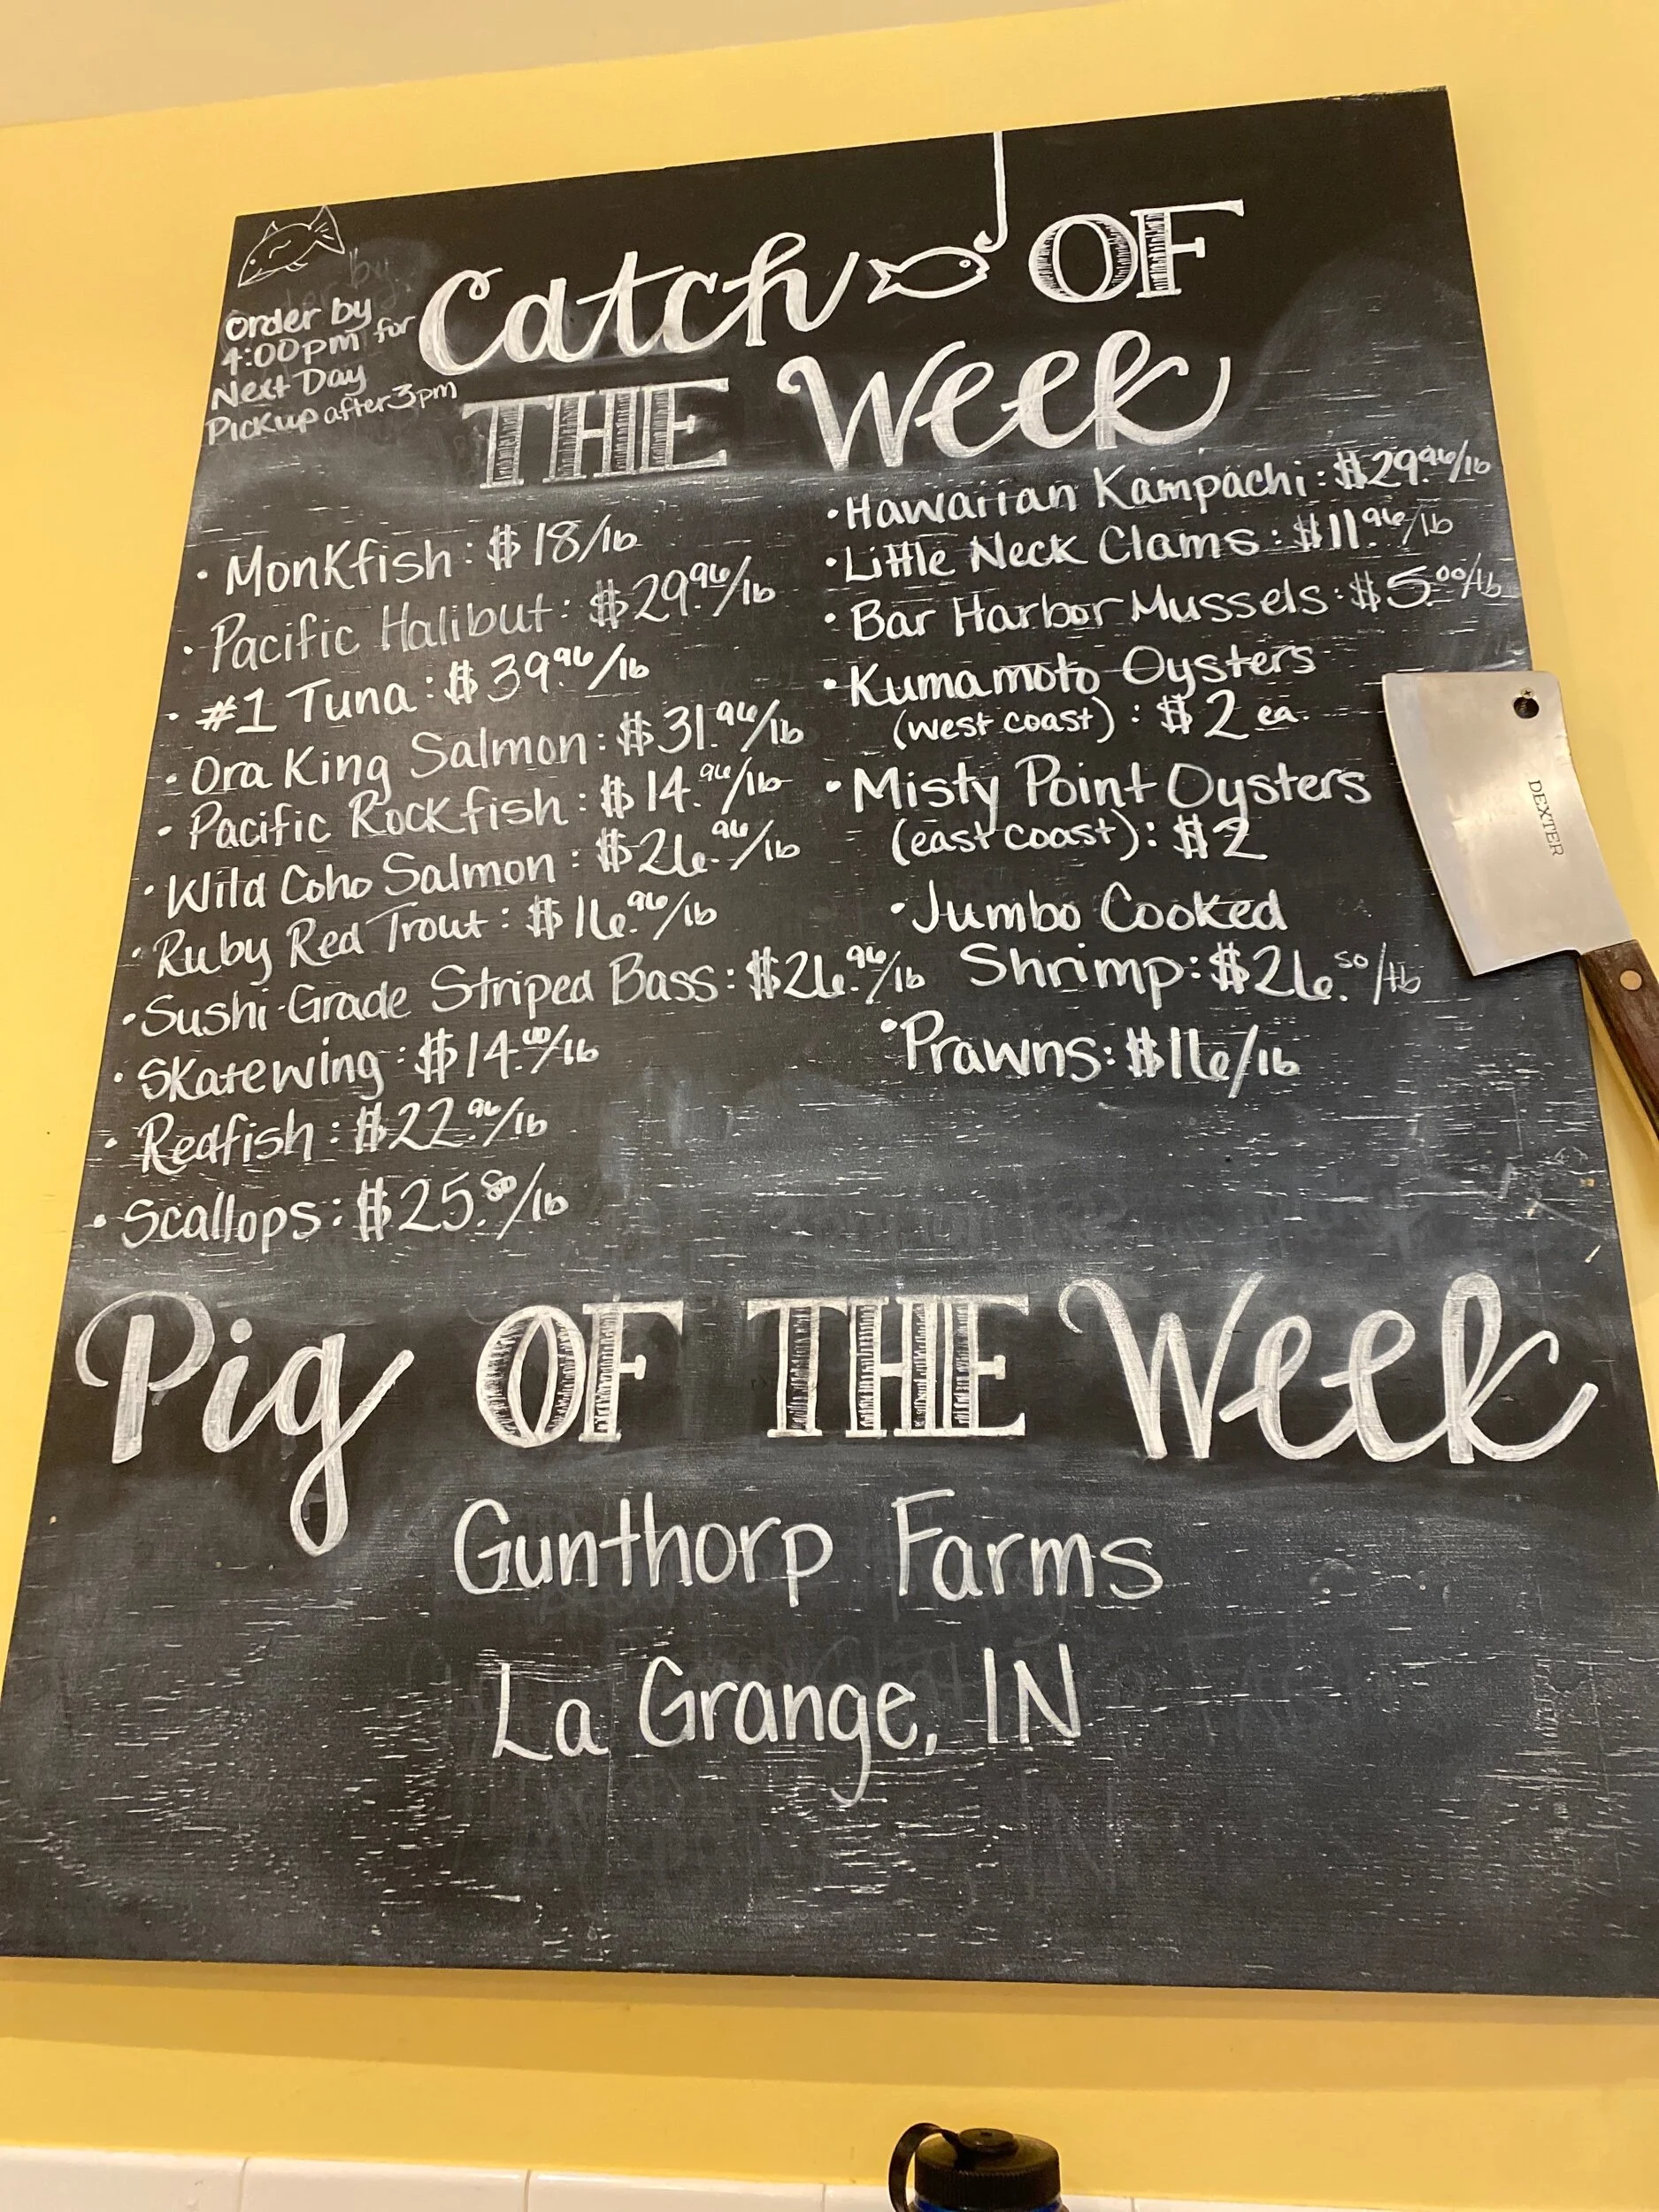 Order by
4:00pm for
Next Day
Pickup after 3pm
Catch OF
THE Week
• Monkfish: $18/lb
• Pacific Halibut: $29.96/lb
• #1 Tuna: $39.96/lb
• Ora King Salmon: $31.96/lb
• Pacific Rockfish: $14.96/lb
• Wild Coho Salmon: $26.96/lb
• Ruby Red Trout: $16.96/lb
• Sushi-Grade Striped Bass: $26.96/lb
• Skatewing: $14.00/lb
• Redfish: $22.96/lb
• Scallops: $25.80/lb
• Hawaiian Kampachi: $29.96/lb
• Little Neck Clams: $11.96/lb
• Bar Harbor Mussels: $5.00/lb
• Kumamoto Oysters
(west coast): $2 ea.
• Misty Point Oysters
(east coast): $2
• Jumbo Cooked
Shrimp: $26.50/lb
• Prawns: $16/lb
Pig OF THE Week
Gunthorp Farms
La Grange, IN
DEXTER